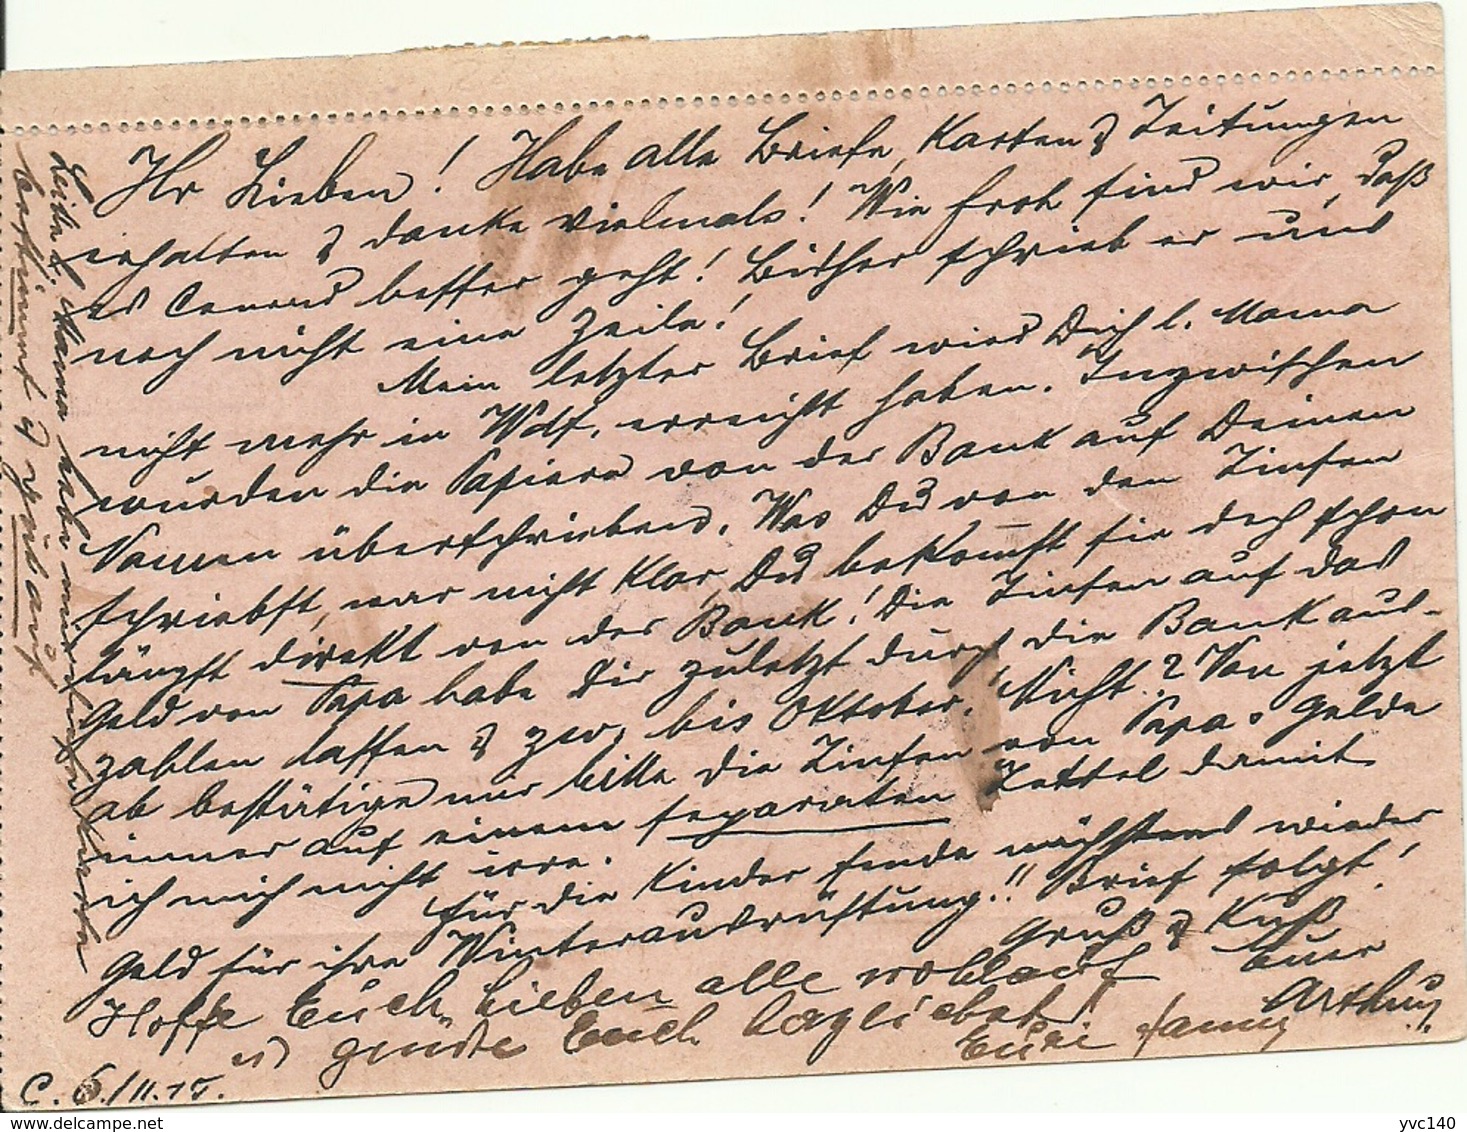 Ihr Lieben! Habe alle Briefe, Karten & Zeitungen
erhalten & danke vielmals! Wie froh sind wir, daß
es besser geht! Bisher schrieb er uns
noch nicht eine Zeile!
Mein letzter Brief wird Dich l. Mama
nicht mehr in Wdf. erreicht haben. Inzwischen
wurden die Papiere von der Bank auf Deinen
Namen überschrieben. Was Du von den Zinsen
schriebst, war nicht klar, Du bekommst sie doch schon
längst direkt von der Bank! Die Zinsen auf das
Geld von Papa habe Dir zuletzt durch die Bank aus-
zahlen lassen & zw. bis Oktober. Nicht? Von jetzt
ab bestätige mir bitte die Zinsen von Papas Gelde
immer auf einem separaten Zettel damit
ich mich nicht irre.
Für die Kinder sende nächstens wieder
Geld für ihre Winterausrüstung!! Brief folgt!
Gruß & Kuß
Euer
Arthur
Hoffe Euch Lieben alle wohlauf
u grüße Euch herzlichst!
Eure Fanny
C. 6./11.15.
Liebe Mama habe nur
bestimmt &